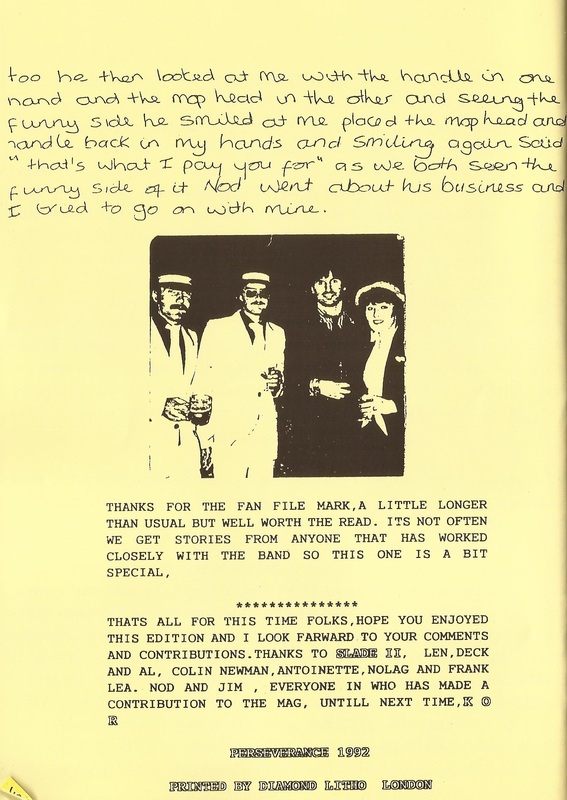 too he then looked at me with the handle in one
hand and the mop head in the other and seeing the
funny side he smiled at me placed the mop head and
handle back in my hands and smiling again said
" that's what I pay you for" as we both seen the
funny side of it Nod went about his business and
I tried to go on with mine.
THANKS FOR THE FAN FILE MARK,A LITTLE LONGER
THAN USUAL BUT WELL WORTH THE READ. ITS NOT OFTEN
WE GET STORIES FROM ANYONE THAT HAS WORKED
CLOSELY WITH THE BAND SO THIS ONE IS A BIT
SPECIAL,
***************
THATS ALL FOR THIS TIME FOLKS,HOPE YOU ENJOYED
THIS EDITION AND I LOOK FARWARD TO YOUR COMMENTS
AND CONTRIBUTIONS.THANKS TO SLADE II, LEN,DECK
AND AL, COLIN NEWMAN,ANTOINETTE,NOLAG AND FRANK
LEA. NOD AND JIM , EVERYONE IN WHO HAS MADE A
CONTRIBUTION TO THE MAG, UNTILL NEXT TIME,K O
R
PERSEVERANCE 1992
PRINTED BY DIAMOND LITHO LONDON